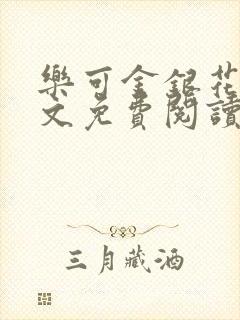 樂可金銀花
文免費閱讀
三月藏酒